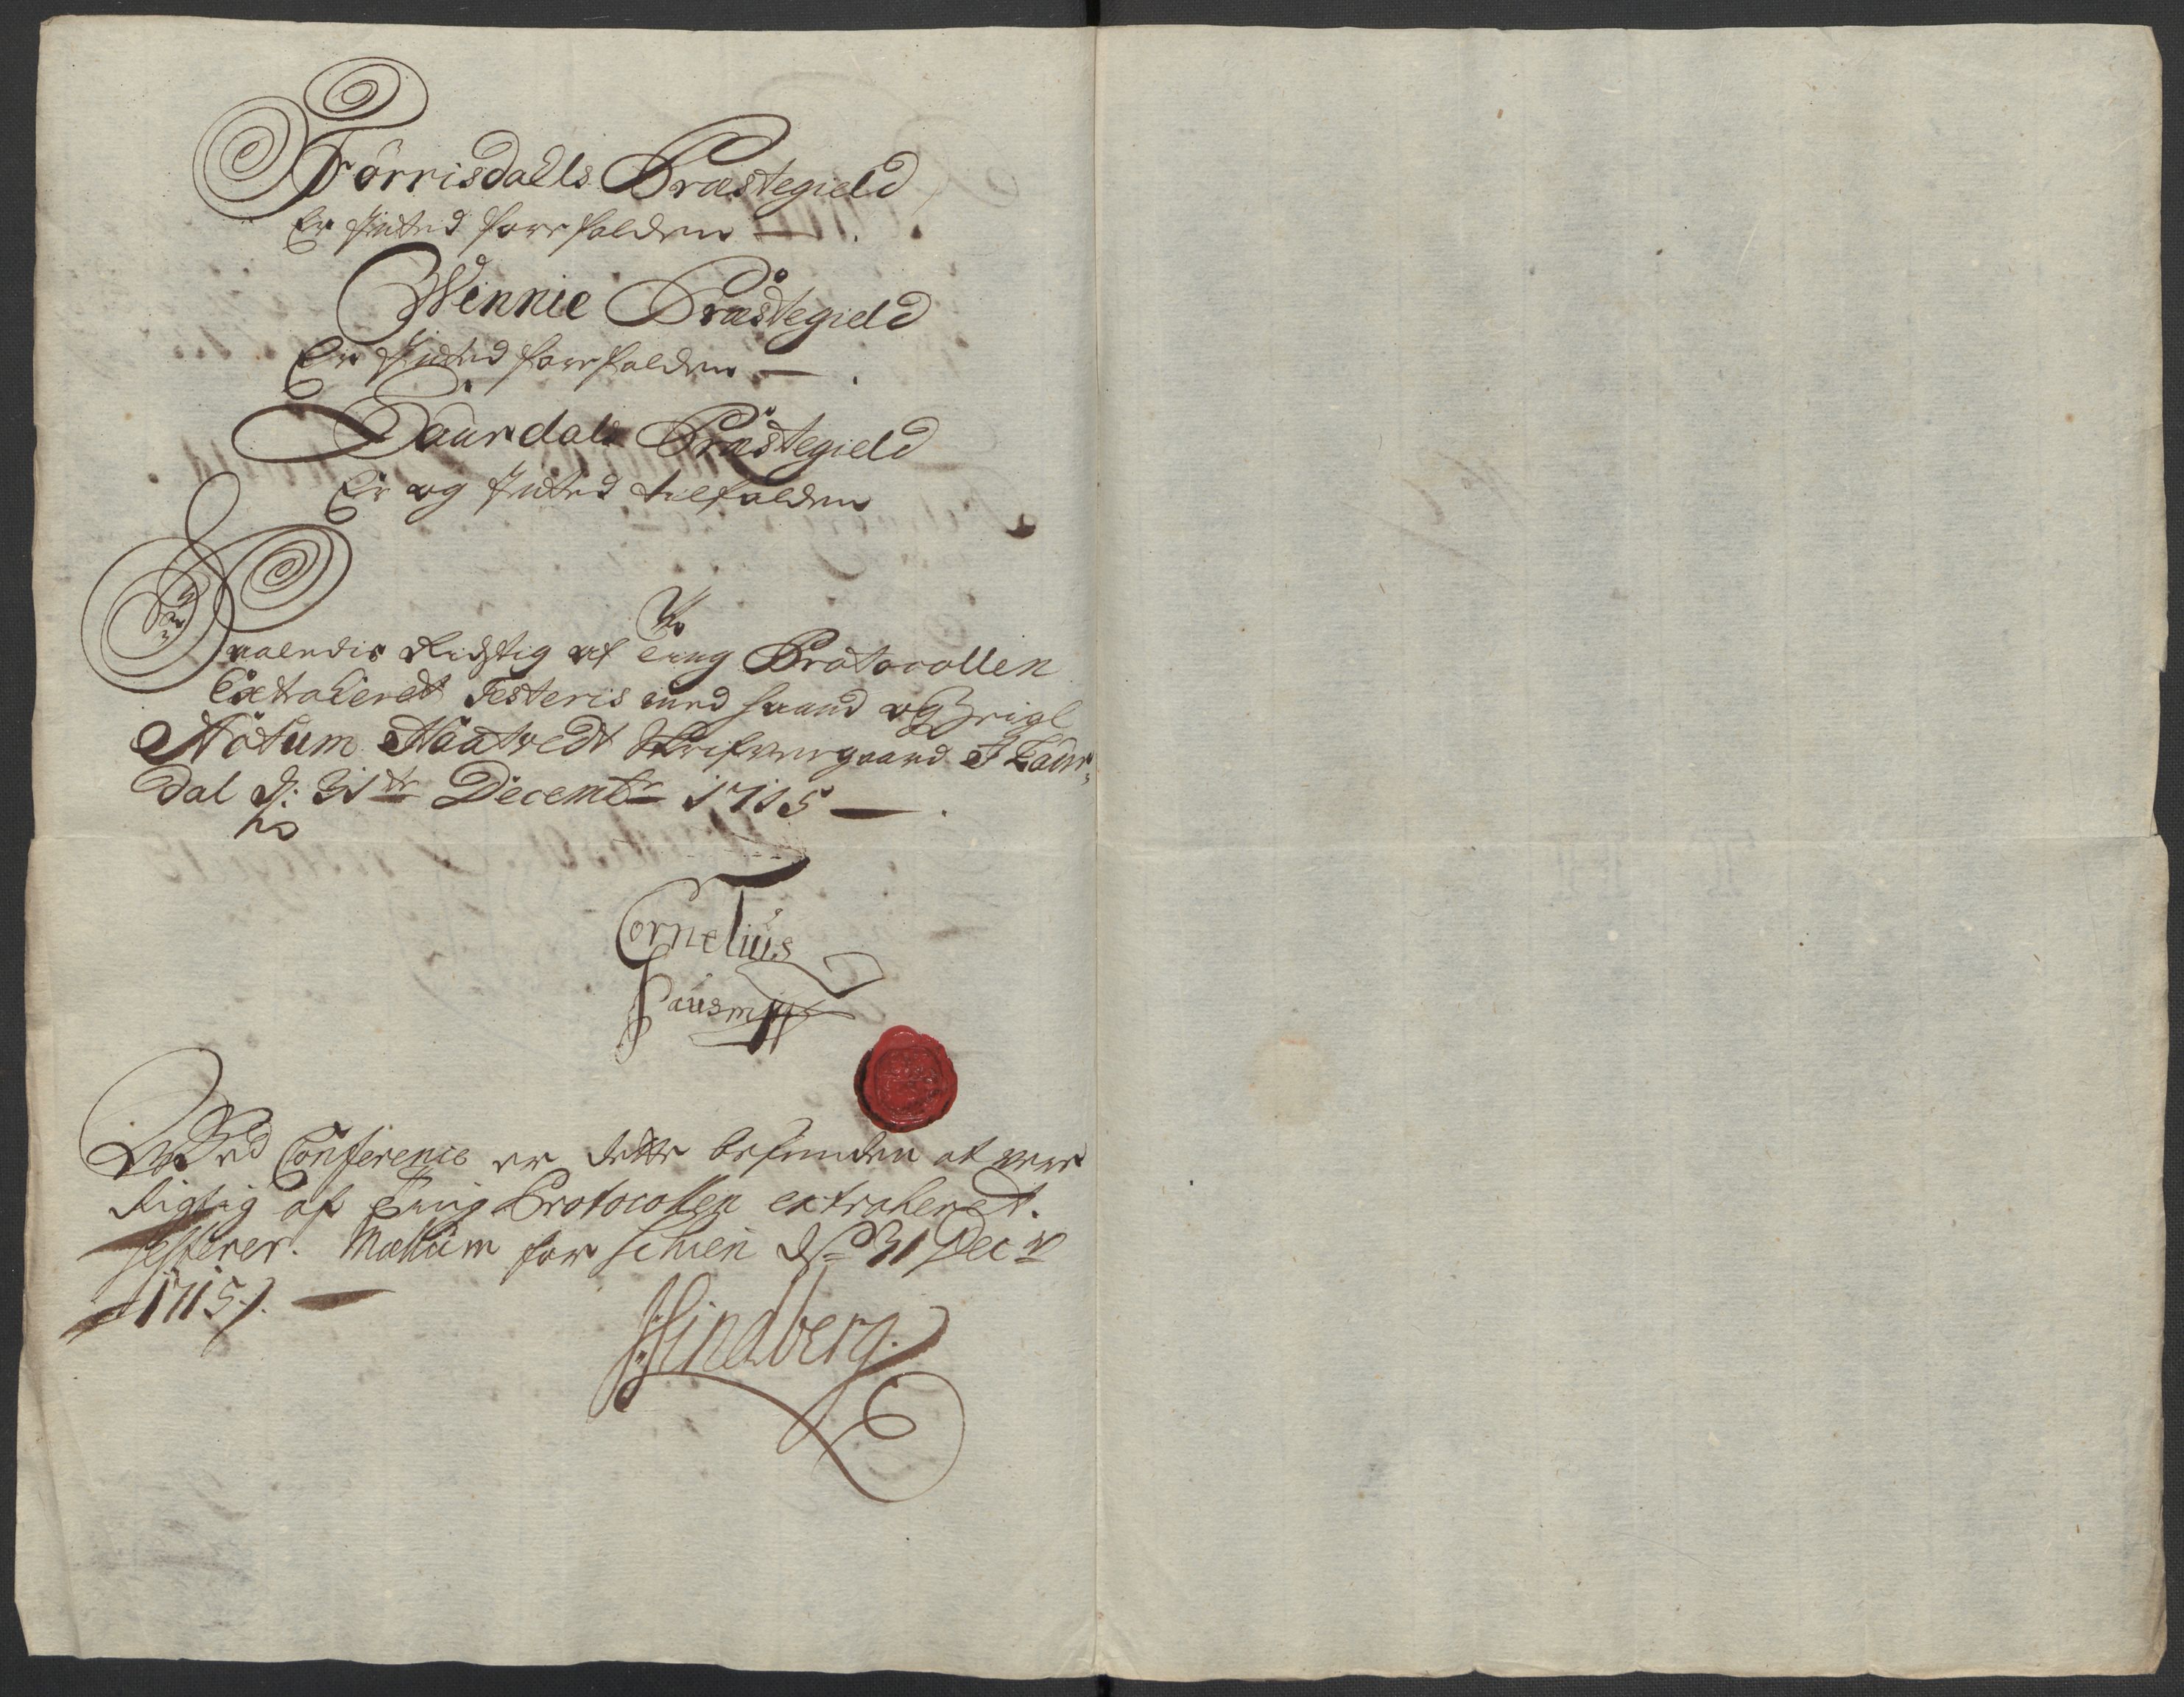 Torrisdalls Præstegield
Er Inted forefalden —
Winnie Præstegield
Er Inted forefalden —
Laurdals Præstegield
Er og Inted tilfalden
Saaledis Rigtig af Ting Protocollen
Extraheret Testeris med Haand og Zeigl
Actum Naatvedt Skrifvergaard I Laur-
dal d: 31te Decembr 1715 —
Cornelius
Pausmy
Ved Conference er dette befunden at vere
Rigtig af Ting Protocollen extraheret.
Testerer. Mællum for Schien d 31 Decr
1715 /. —
Hindberg.